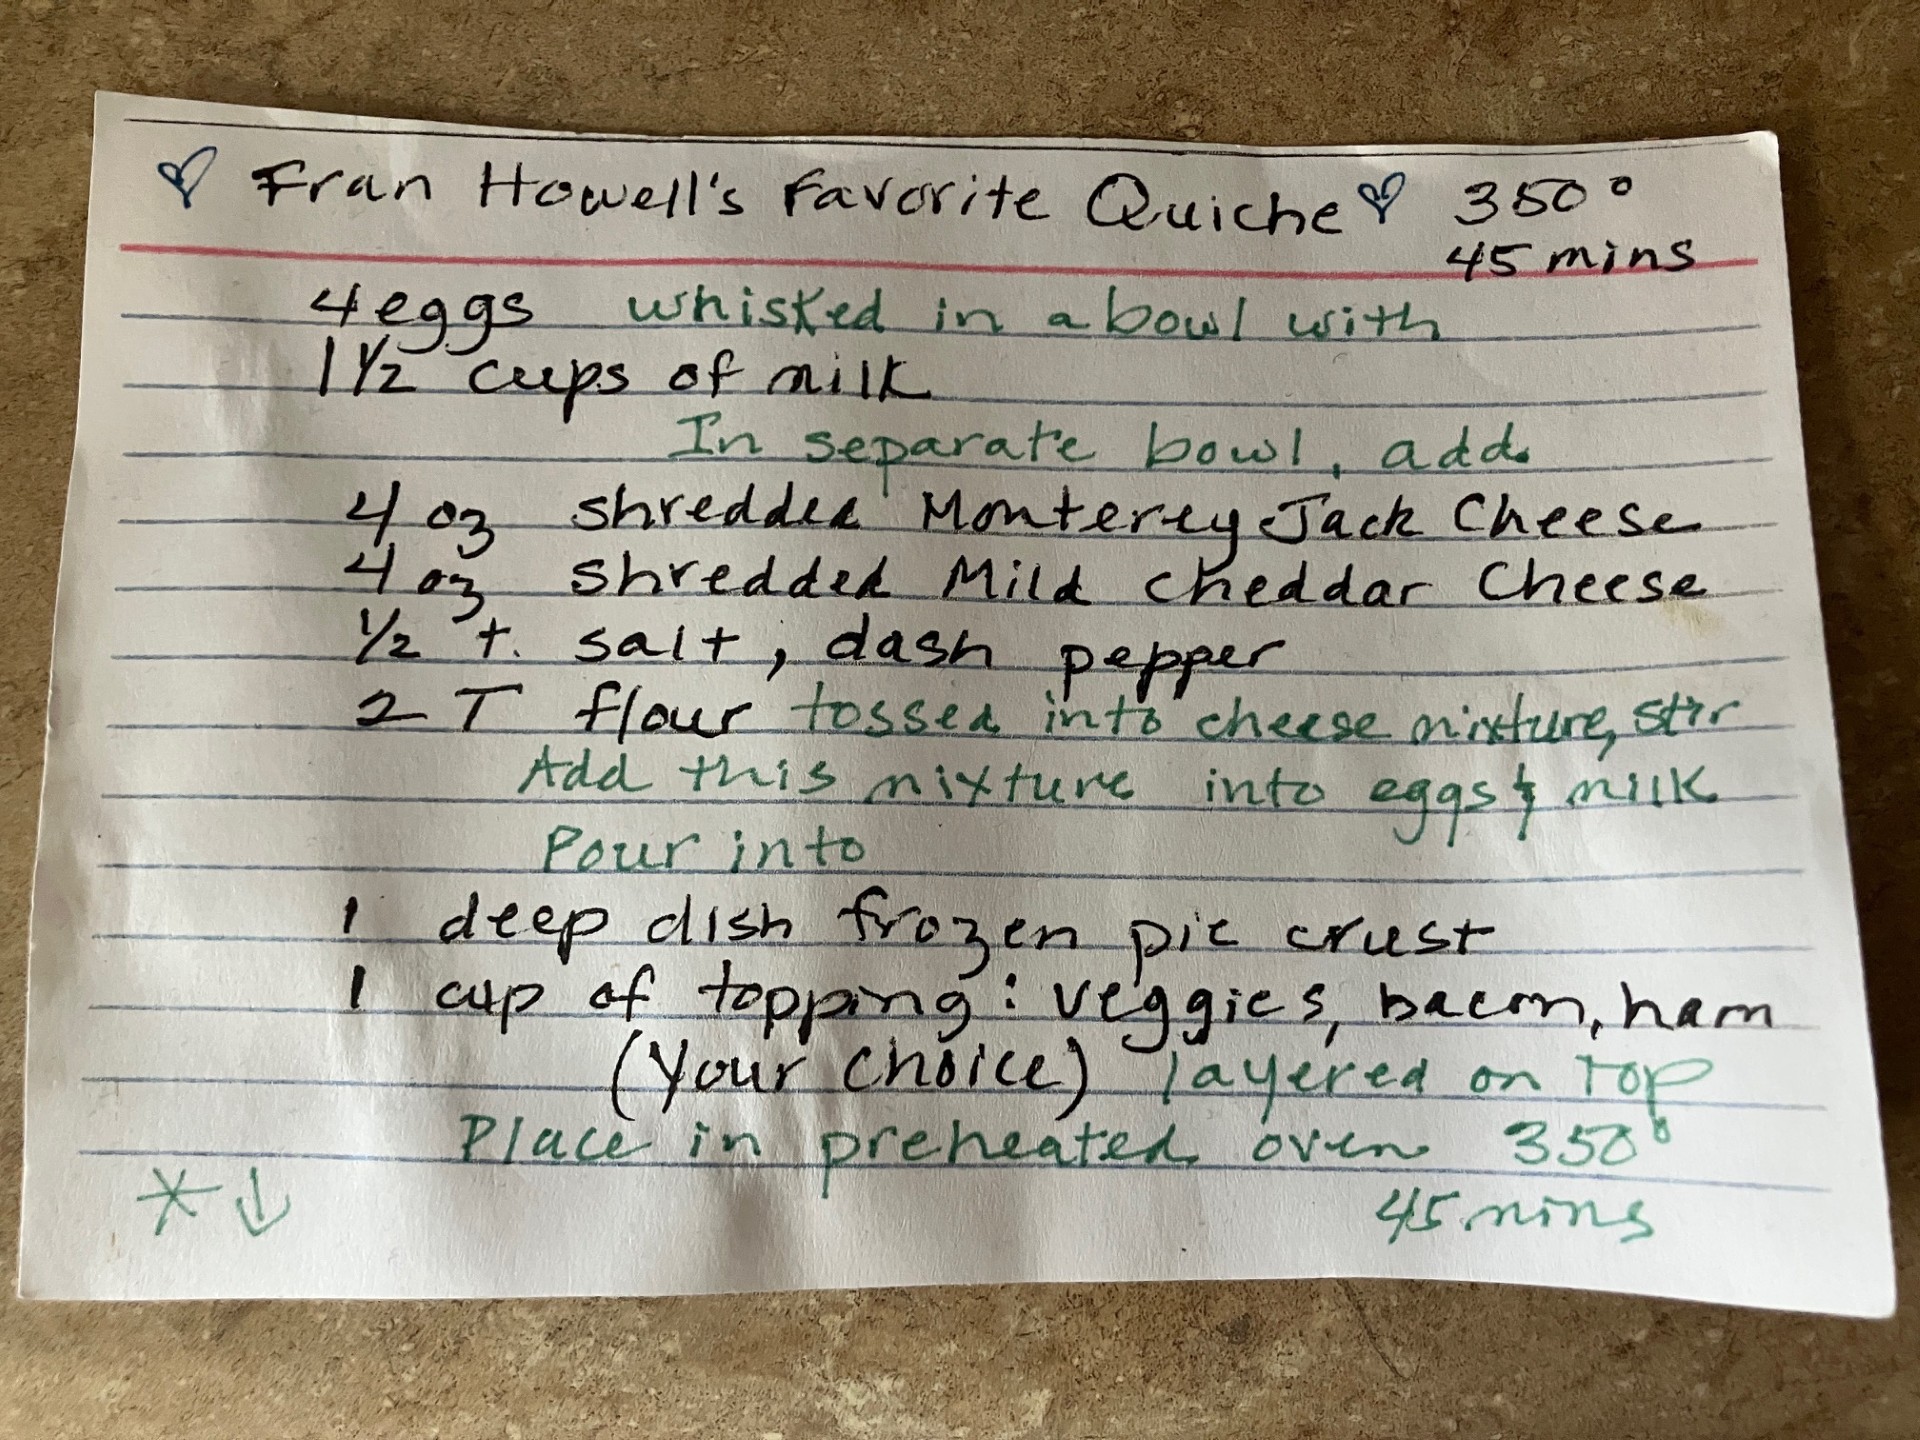 ♡ Fran Howell's Favorite Quiche ♡ 350°
45 mins
4 eggs whisked in a bowl with
1 1/2 cups of milk
In separate bowl, add
4 oz shredded Monterey Jack Cheese
4 oz shredded Mild Cheddar Cheese
1/2 t. salt, dash pepper
2 T flour tossed into cheese mixture, stir
Add this mixture into eggs & milk
Pour into
1 deep dish frozen pie crust
1 cup of topping: veggies, bacon, ham
(your choice) layered on top
Place in preheated oven 350°
* ↓ 45 mins